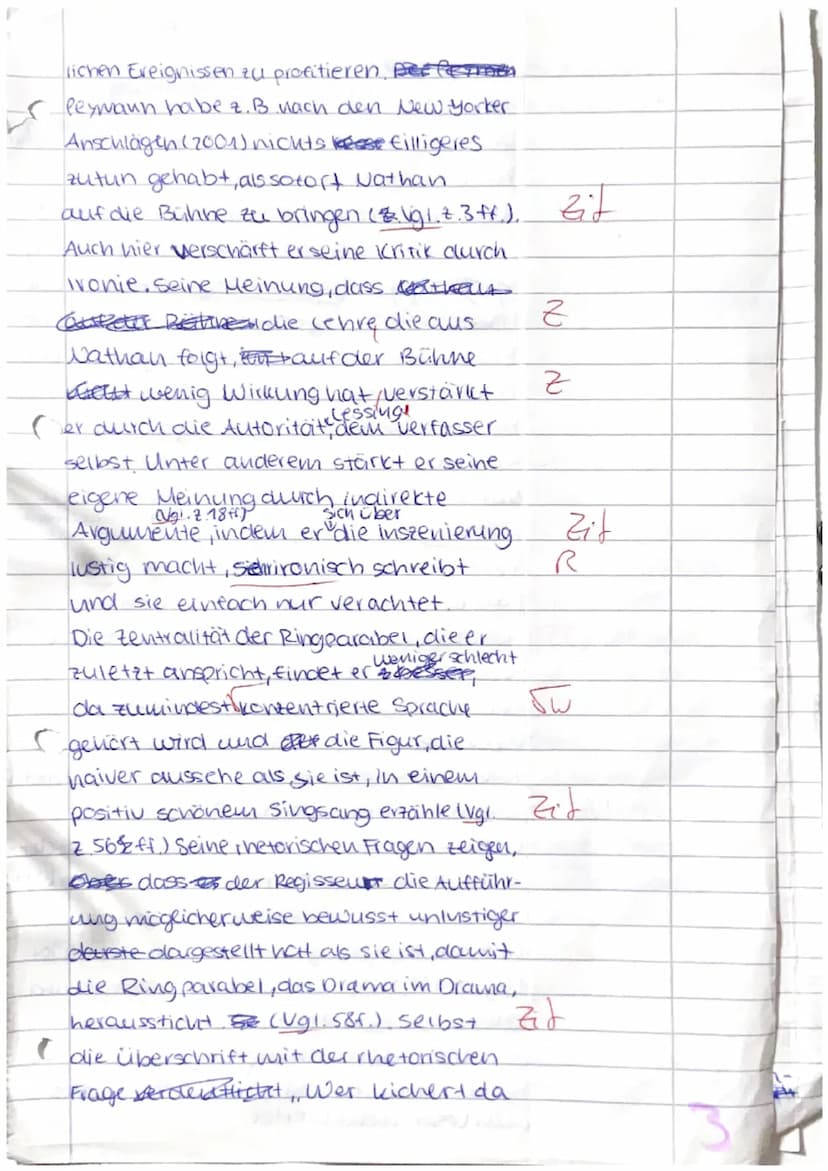 lichen Ereignissen zu profitieren.
Peymann habe z.B. nach den New Yorker
Anschlägen (2001) nichts Eilligeres
zutun gehabt, als sofort Nathan
auf die Bühne zu bringen (Vgl. z. 3 ff.). Zit
Auch hier verschärft er seine Kritik durch
Ironie. Seine Meinung, dass
die Lehre die aus Z
Nathan folgt, auf der Bühne
wenig Wirkung hat, verstärkt Z
Lessing
er durch die Autorität, dem Verfasser
selbst. Unter anderem stärkt er seine
eigene Meinung durch indirekte
(Vgl. z. 18 ff) sich über
Argumente, indem er die Inszenierung Zit
lustig macht, ironisch schreibt R
und sie einfach nur verachtet.
Die Zentralität der Ringparabel, die er
weniger schlecht
zuletzt anspricht, findet er
da zumindest konzentrierte Sprache W
gehört wird und die Figur, die
naiver aussehe als sie ist, in einem
positiv schönem Singsang erzähle (Vgl. Zit
z. 56 ff.) Seine rhetorischen Fragen zeigen,
dass der Regisseur die Aufführ-
ung möglicherweise bewusst unlustiger
dargestellt hat als sie ist, damit
die Ringparabel, das Drama im Drama,
heraussticht (Vgl. 58f.). Selbst Zit
die Überschrift mit der rhetorischen
Frage „Wer kichert da
3